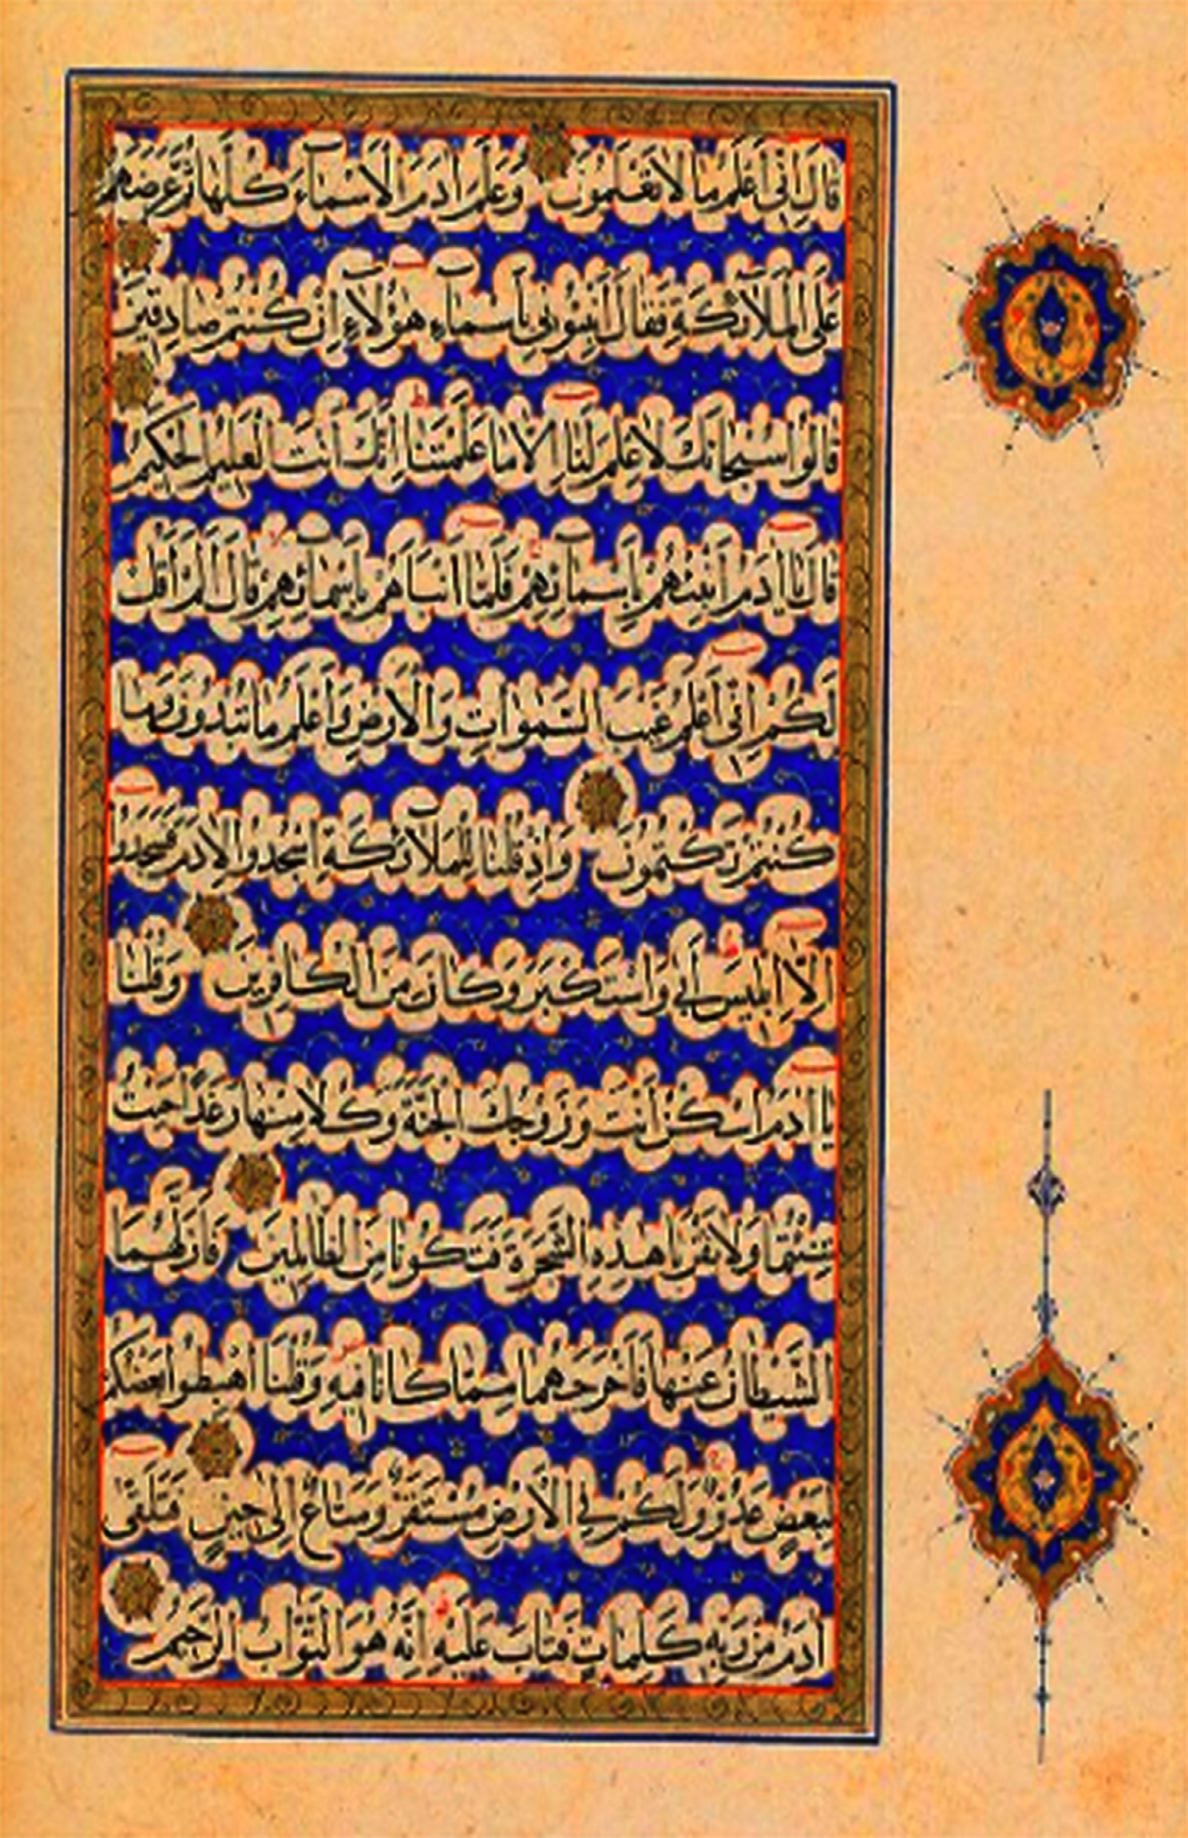 قَالَ اِنِّي اَعْلَمُ مَا لَا تَعْلَمُونَ وَعَلَّمَ ادَمَ الْاَسْمَآءَ كُلَّهَا ثُمَّ عَرَضَهُمْ
عَلَى الْمَلَآئِكَةِ فَقَالَ اَنْبِئُونِي بِاَسْمَآءِ هٰؤُلَآءِ اِنْ كُنْتُمْ صَادِقِينَ
قَالُوا سُبْحَانَكَ لَا عِلْمَ لَنَا اِلَّا مَا عَلَّمْتَنَا اِنَّكَ اَنْتَ الْعَلِيمُ الْحَكِيمُ
قَالَ يَا ادَمُ اَنْبِئْهُمْ بِاَسْمَآئِهِمْ فَلَمَّا اَنْبَاَهُمْ بِاَسْمَآئِهِمْ قَالَ اَلَمْ اَقُلْ
لَكُمْ اِنِّي اَعْلَمُ غَيْبَ السَّمٰوَاتِ وَالْاَرْضِ وَاَعْلَمُ مَا تُبْدُونَ وَمَا
كُنْتُمْ تَكْتُمُونَ وَاِذْ قُلْنَا لِلْمَلَآئِكَةِ اسْجُدُوا لِادَمَ فَسَجَدُوا
اِلَّا اِبْلِيسَ اَبٰى وَاسْتَكْبَرَ وَكَانَ مِنَ الْكَافِرِينَ وَقُلْنَا
يَا ادَمُ اسْكُنْ اَنْتَ وَزَوْجُكَ الْجَنَّةَ وَكُلَا مِنْهَا رَغَدًا حَيْثُ
شِئْتُمَا وَلَا تَقْرَبَا هٰذِهِ الشَّجَرَةَ فَتَكُونَا مِنَ الظَّالِمِينَ فَاَزَلَّهُمَا
الشَّيْطَانُ عَنْهَا فَاَخْرَجَهُمَا مِمَّا كَانَا فِيهِ وَقُلْنَا اهْبِطُوا بَعْضُكُمْ
لِبَعْضٍ عَدُوٌّ وَلَكُمْ فِي الْاَرْضِ مُسْتَقَرٌّ وَمَتَاعٌ اِلٰى حِينٍ فَتَلَقّٰى
ادَمُ مِنْ رَبِّهِ كَلِمَاتٍ فَتَابَ عَلَيْهِ اِنَّهُ هُوَ التَّوَّابُ الرَّحِيمُ